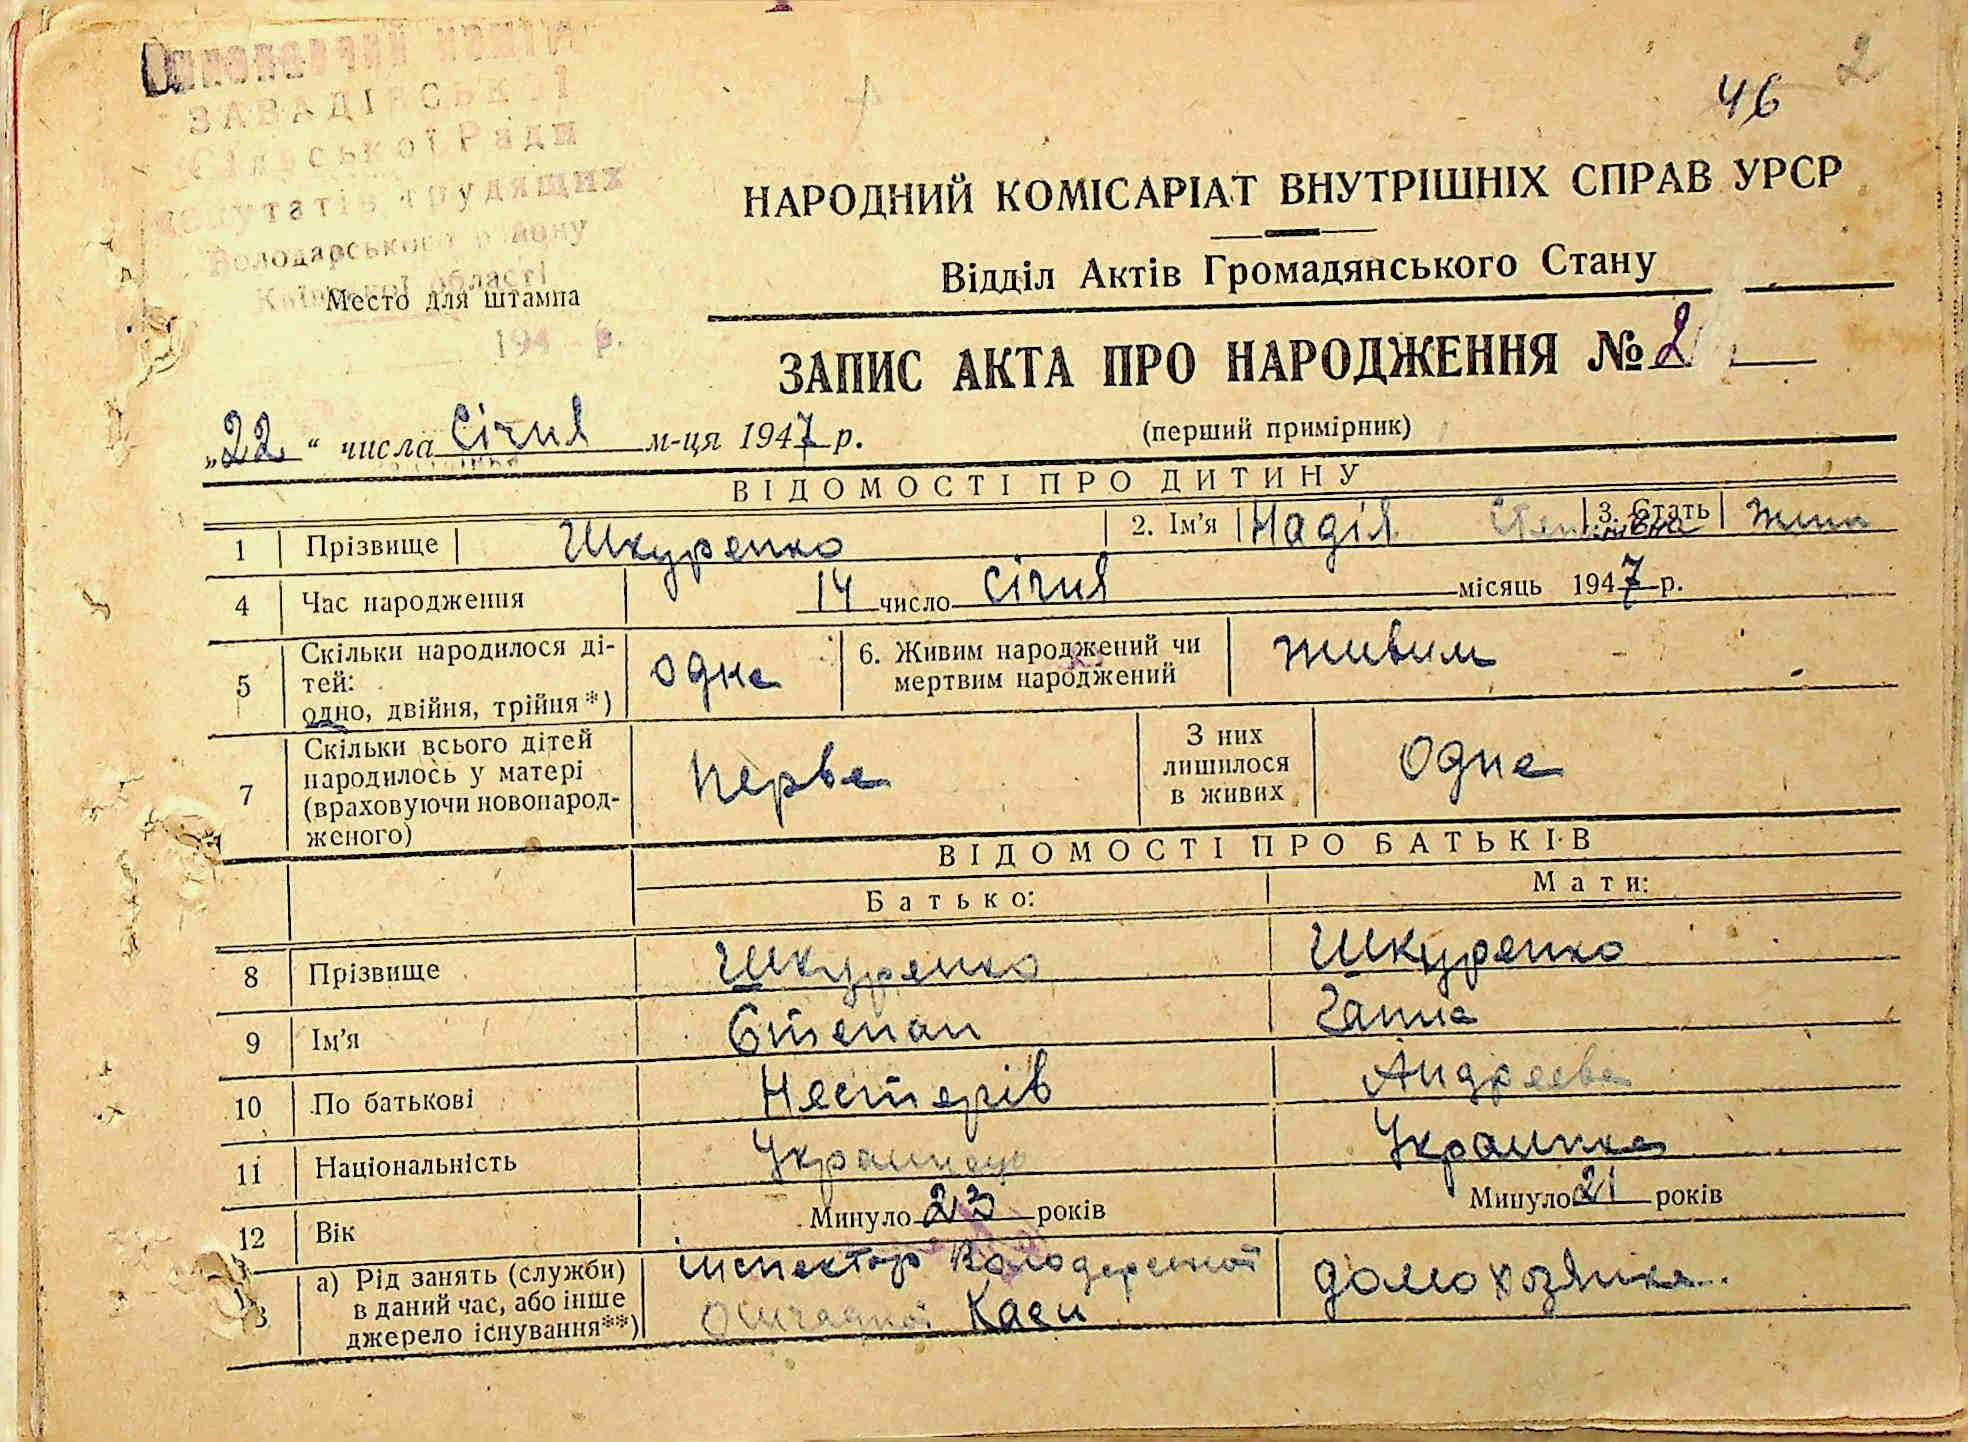 2
46
Виконавчий комітет
ЗАВАДІВСЬКОЇ
Сільської Ради
депутатів трудящих
Володарського району
Київської області
Место для штампа
194 р.
НАРОДНИЙ КОМІСАРІАТ ВНУТРІШНІХ СПРАВ УРСР
Відділ Актів Громадянського Стану
ЗАПИС АКТА ПРО НАРОДЖЕННЯ № 2
(перший примірник)
„22“ числа Січня м-ця 1947 р.
ВІДОМОСТІ ПРО ДИТИНУ
1 Прізвище Шкуренко 2. Ім'я Надія Степанівна 3. Стать жин
4 Час народження 14 число Січня місяць 1947 р.
5 Скільки народилося ді-
тей:
одно, двійня, трійня*) одне 6. Живим народжений чи
мертвим народжений живим
7 Скільки всього дітей
народилось у матері
(враховуючи новонарод-
женого) перве З них
лишилося
в живих Одне
ВІДОМОСТІ ПРО БАТЬКІВ
Батько: Мати:
8 Прізвище Шкуренко Шкуренко
9 Ім'я Степан Ганна
10 По батькові Нестерів Андреева
11 Національність Украинець Украинка
12 Вік Минуло 23 років Минуло 21 років
13 а) Рід занять (служби)
в даний час, або інше
джерело існування**) інспектор Володарської
Ощадної Каси домохозяйка